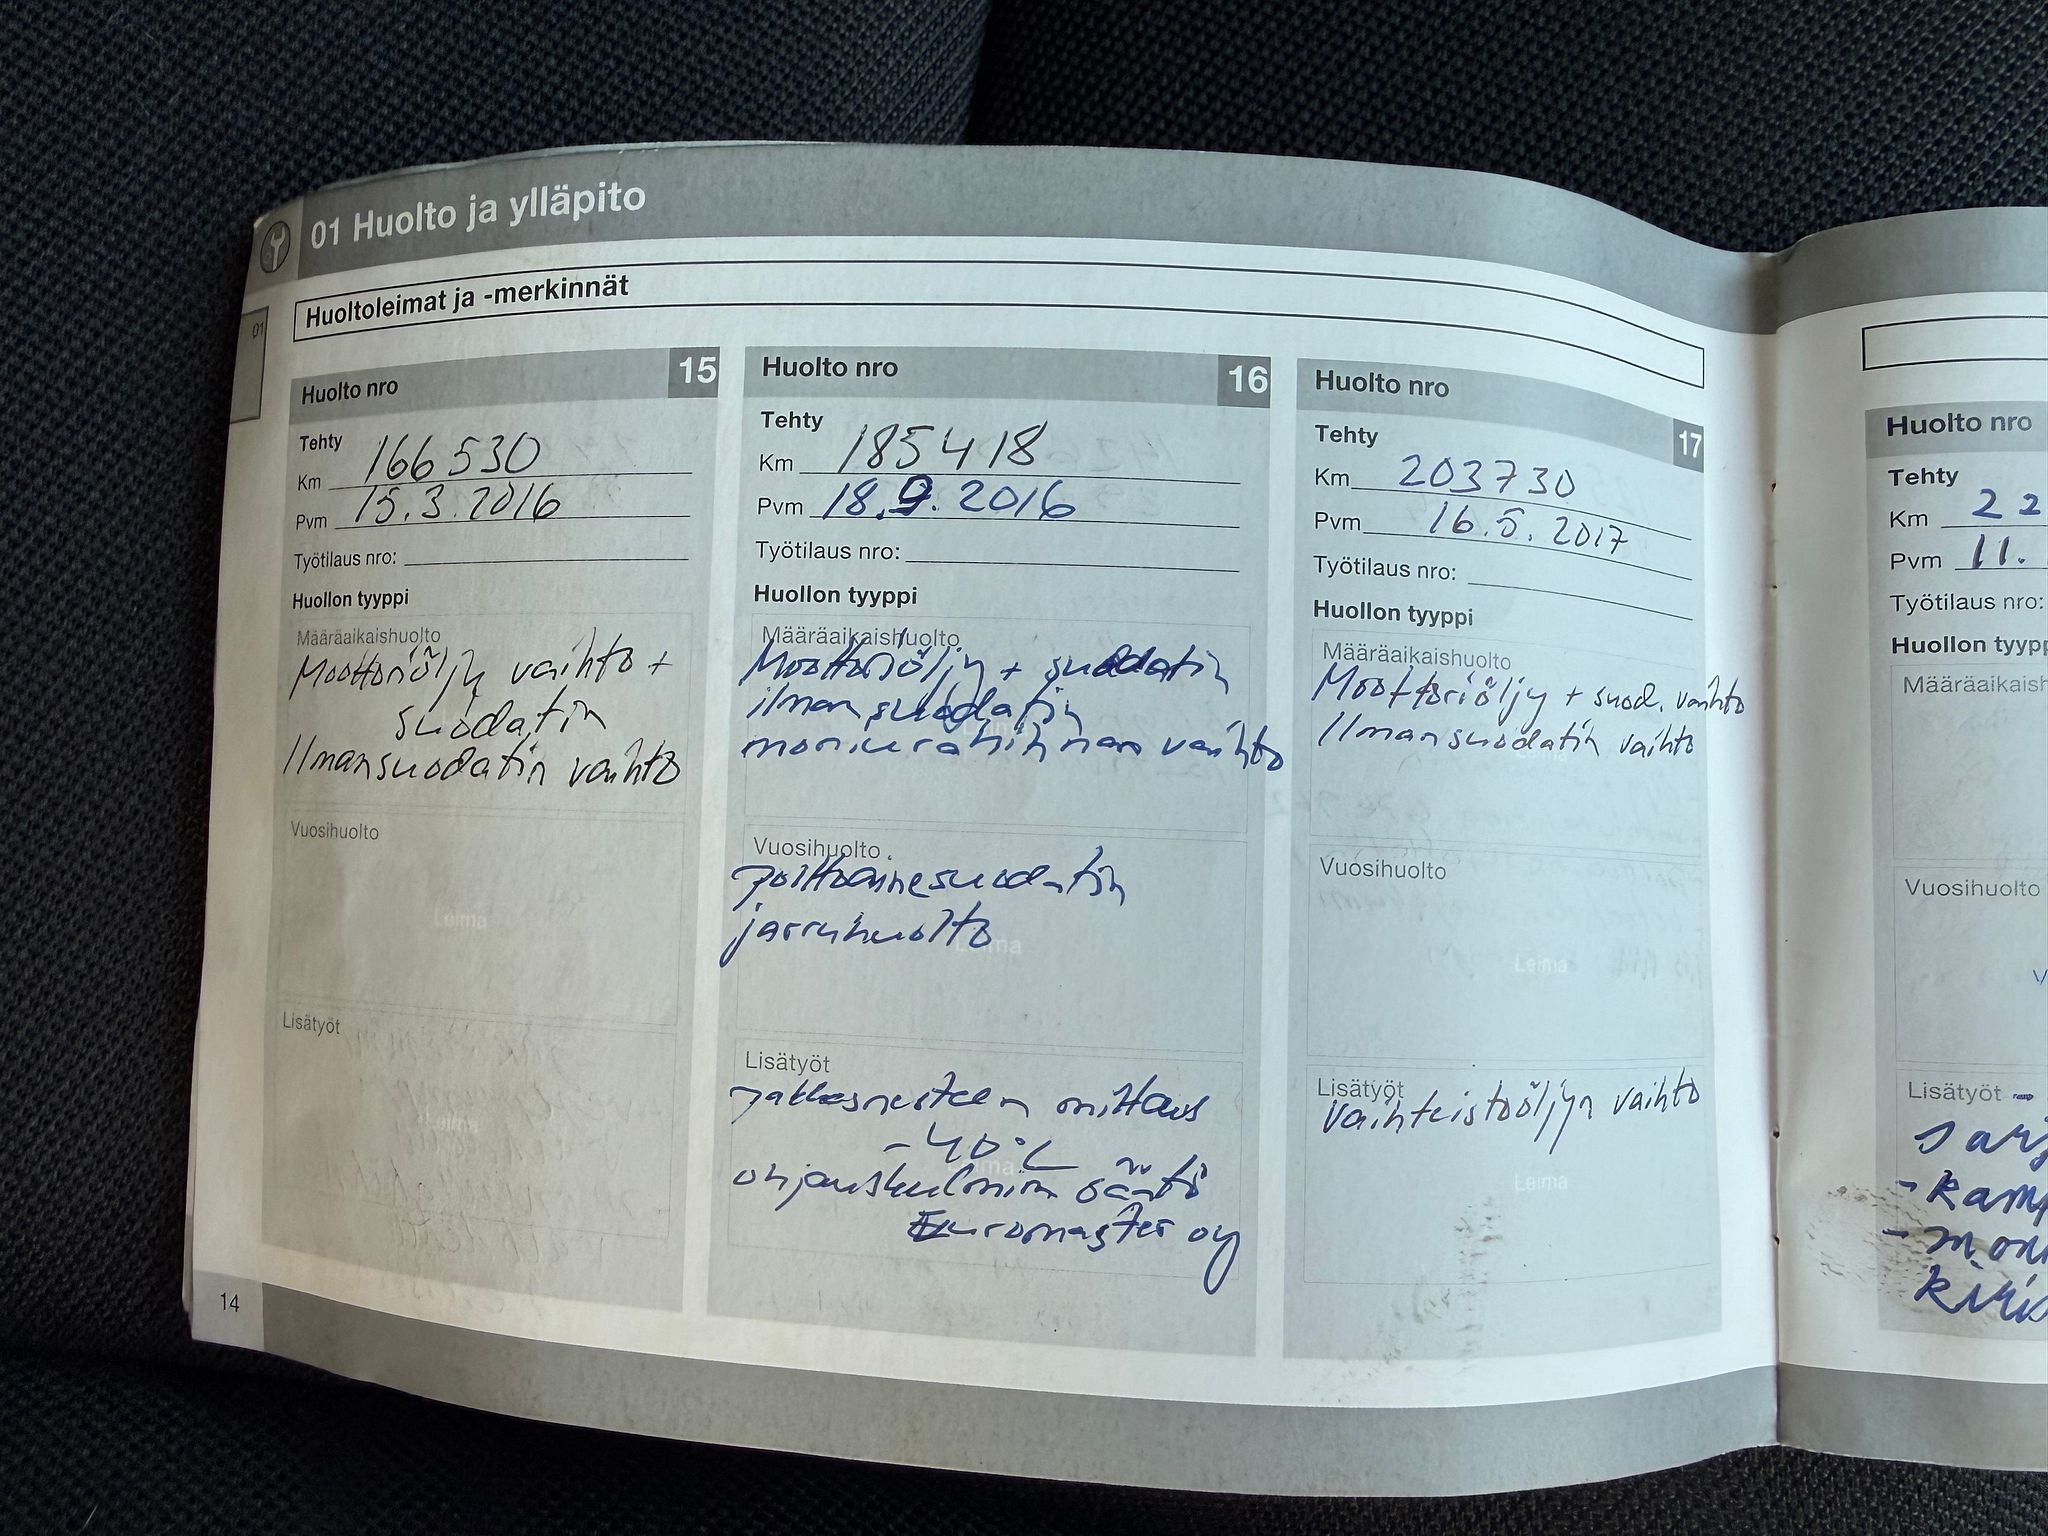 01 Huolto ja ylläpito
01
Huoltoleimat ja -merkinnät
Huolto nro 15
Tehty
Km 166 530
Pvm 15.3.2016
Työtilaus nro:
Huollon tyyppi
Määräaikaishuolto
Moottoriöljy vaihto +
suodatin
Ilmansuodatin vaihto
Vuosihuolto
Leima
Lisätyöt
Leima
Huolto nro 16
Tehty
Km 185 418
Pvm 18.9.2016
Työtilaus nro:
Huollon tyyppi
Määräaikaishuolto
Moottoriöljy + suodatin
ilmansuodatin
moniurahihnan vaihto
Vuosihuolto
polttoainesuodatin
jarruhuolto
Leima
Lisätyöt
pakkasnesteen mittaus
-40°C
ohjauskulmien säätö
Euromaster oy
Huolto nro 17
Tehty
Km 203730
Pvm 16.5.2017
Työtilaus nro:
Huollon tyyppi
Määräaikaishuolto
Moottoriöljy + suod. vaihto
Ilmansuodatin vaihto
Leima
Vuosihuolto
Leima
Lisätyöt
Vaihteistoöljyn vaihto
Leima
14
Huolto nro
Tehty
Km 22
Pvm 11.
Työtilaus nro:
Huollon tyyp
Määräaikaish
Vuosihuolto
Lisätyöt -